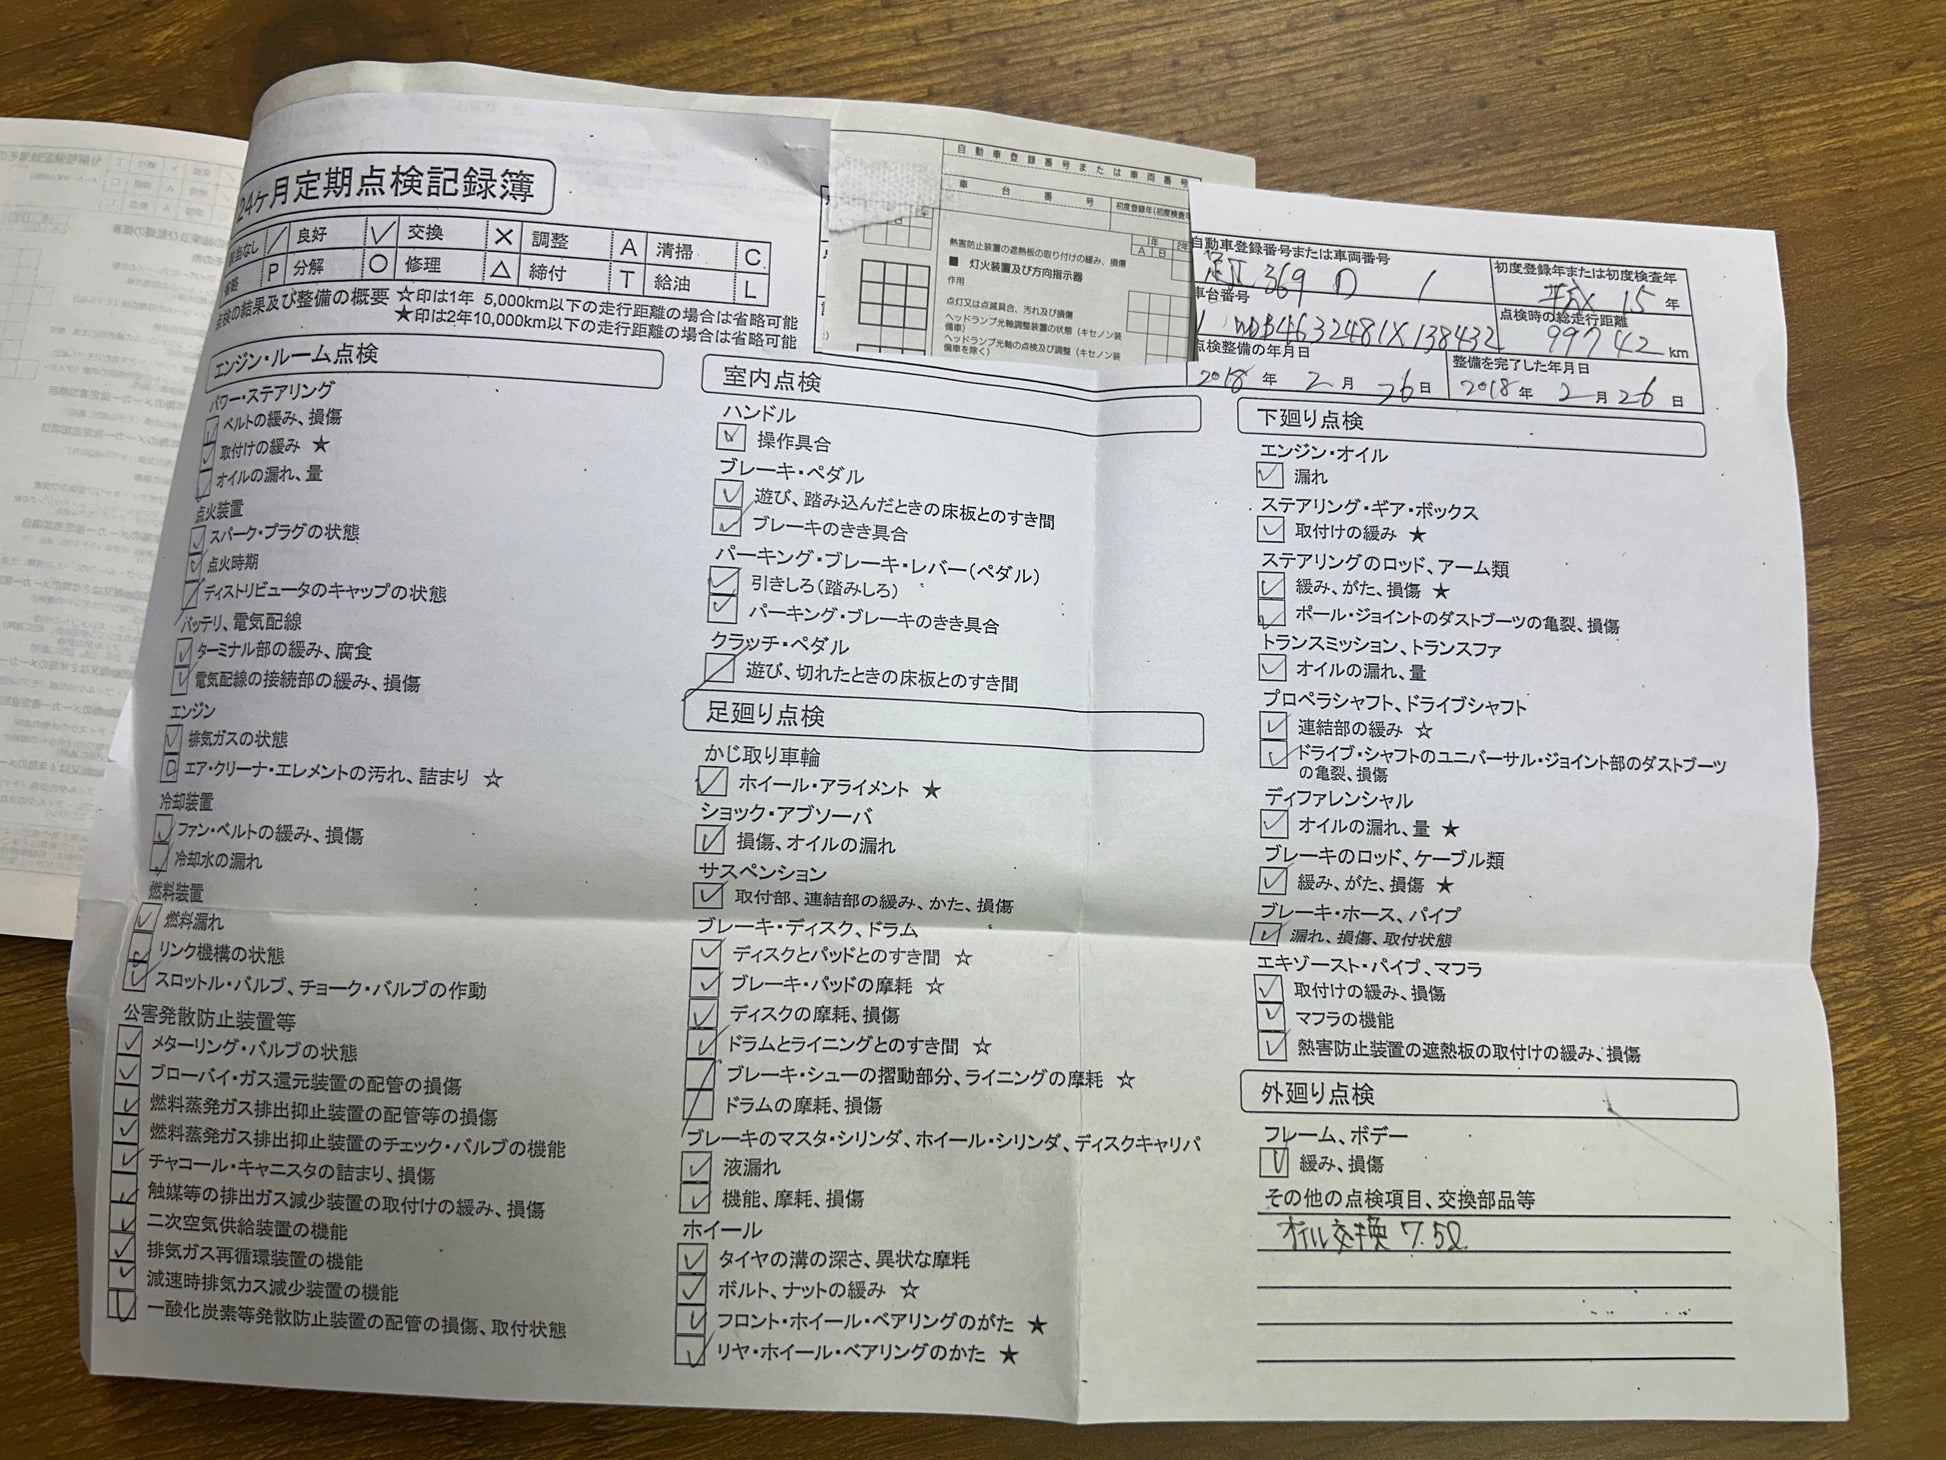 24ケ月定期点検記録簿
該当なし / 良好 ✓ 交換 × 調整 A 清掃 C
省略 P 分解 ○ 修理 △ 締付 T 給油 L
点検の結果及び整備の概要 ☆印は1年 5,000km以下の走行距離の場合は省略可能
★印は2年10,000km以下の走行距離の場合は省略可能
エンジン・ルーム点検
パワー・ステアリング
ベルトの緩み、損傷
取付けの緩み ★
オイルの漏れ、量
点火装置
スパーク・プラグの状態
点火時期
ディストリビュータのキャップの状態
バッテリ、電気配線
ターミナル部の緩み、腐食
電気配線の接続部の緩み、損傷
エンジン
排気ガスの状態
エア・クリーナ・エレメントの汚れ、詰まり ☆
冷却装置
ファン・ベルトの緩み、損傷
冷却水の漏れ
燃料装置
燃料漏れ
リンク機構の状態
スロットル・バルブ、チョーク・バルブの作動
公害発散防止装置等
メターリング・バルブの状態
ブローバイ・ガス還元装置の配管の損傷
燃料蒸発ガス排出抑止装置の配管等の損傷
燃料蒸発ガス排出抑止装置のチェック・バルブの機能
チャコール・キャニスタの詰まり、損傷
触媒等の排出ガス減少装置の取付けの緩み、損傷
二次空気供給装置の機能
排気ガス再循環装置の機能
減速時排気カス減少装置の機能
一酸化炭素等発散防止装置の配管の損傷、取付状態
自動車登録番号または車両番号
車台番号
初度登録年(初度検査年
1年
A B
熱害防止装置の遮熱板の取り付けの緩み、損傷
■ 灯火装置及び方向指示器
作用
点灯又は点滅具合、汚れ及び損傷
ヘッドランプ光軸調整装置の状態（キセノン装
備車）
ヘッドランプ光軸の点検及び調整（キセノン装
備車を除く）
室内点検
ハンドル
操作具合
ブレーキ・ペダル
遊び、踏み込んだときの床板とのすき間
ブレーキのきき具合
パーキング・ブレーキ・レバー(ペダル)
引きしろ(踏みしろ)
パーキング・ブレーキのきき具合
クラッチ・ペダル
遊び、切れたときの床板とのすき間
足廻り点検
かじ取り車輪
ホイール・アライメント ★
ショック・アブソーバ
損傷、オイルの漏れ
サスペンション
取付部、連結部の緩み、かた、損傷
ブレーキ・ディスク、ドラム
ディスクとパッドとのすき間 ☆
ブレーキ・パッドの摩耗 ☆
ディスクの摩耗、損傷
ドラムとライニングとのすき間 ☆
ブレーキ・シューの摺動部分、ライニングの摩耗 ☆
ドラムの摩耗、損傷
ブレーキのマスタ・シリンダ、ホイール・シリンダ、ディスクキャリパ
液漏れ
機能、摩耗、損傷
ホイール
タイヤの溝の深さ、異状な摩耗
ボルト、ナットの緩み ☆
フロント・ホイール・ベアリングのがた ★
リヤ・ホイール・ベアリングのかた ★
自動車登録番号または車両番号
369 D 1
初度登録年または初度検査年
15 年
車台番号
WDB4632481X138432
点検時の総走行距離
99742 km
点検整備の年月日
2018 年 2 月 26 日
整備を完了した年月日
2018 年 2 月 26 日
下廻り点検
エンジン・オイル
漏れ
ステアリング・ギア・ボックス
取付けの緩み ★
ステアリングのロッド、アーム類
緩み、がた、損傷 ★
ボール・ジョイントのダストブーツの亀裂、損傷
トランスミッション、トランスファ
オイルの漏れ、量
プロペラシャフト、ドライブシャフト
連結部の緩み ☆
ドライブ・シャフトのユニバーサル・ジョイント部のダストブーツ
の亀裂、損傷
ディファレンシャル
オイルの漏れ、量 ★
ブレーキのロッド、ケーブル類
緩み、がた、損傷 ★
ブレーキ・ホース、パイプ
漏れ、損傷、取付状態
エキゾースト・パイプ、マフラ
取付けの緩み、損傷
マフラの機能
熱害防止装置の遮熱板の取付けの緩み、損傷
外廻り点検
フレーム、ボデー
緩み、損傷
その他の点検項目、交換部品等
オイル交換 7.5ℓ